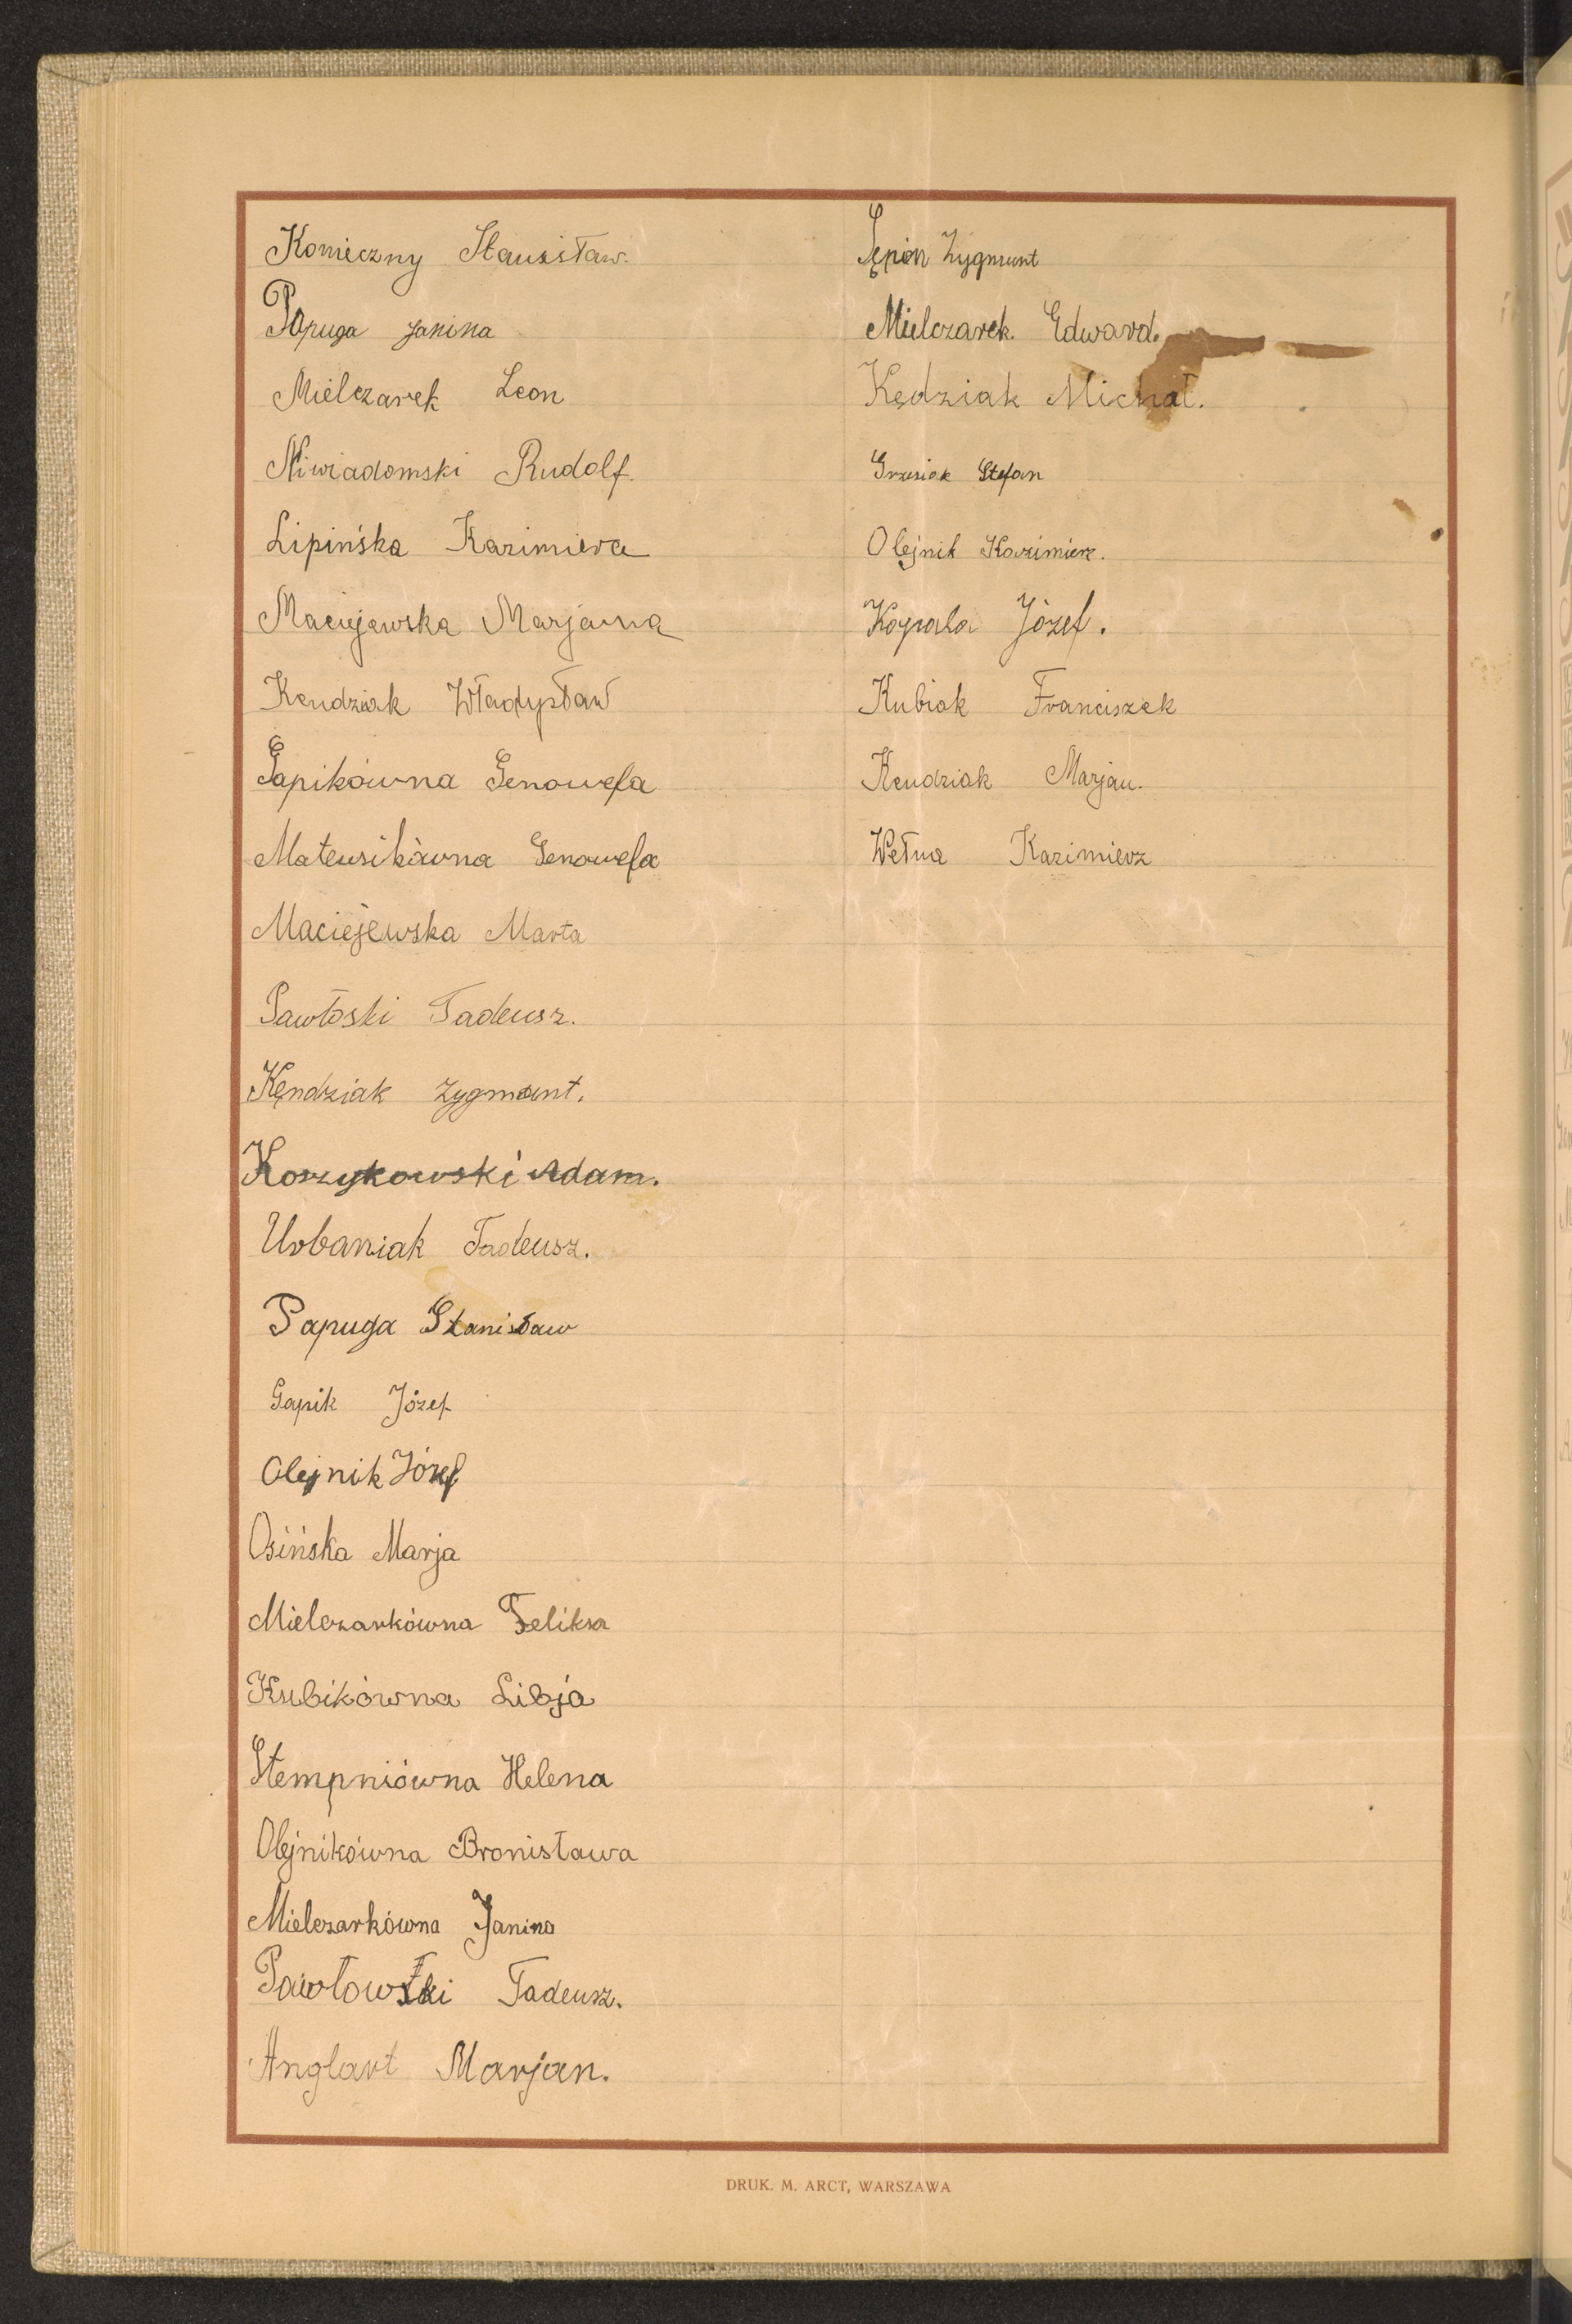 Konieczny Stanisław.
Papuga Janina
Mielczarek Leon
Niwiadomski Rudolf.
Lipińska Kazimiera
Maciejewska Marjanna
Kendziak Władysław
Gapikówna Genowefa
Mateusikówna Genowefa
Maciejewska Marta
Pawłoski Tadeusz.
Kęndziak Zygmunt.
Korzykowski Adam.
Urbaniak Tadeusz.
Papuga Stanisław
Gapik Józef
Olejnik Józef
Osińska Marja
Mielczarkówna Feliksa
Kubikówna Libja
Stempniówna Helena
Olejnikówna Bronisława
Mielczarkówna Janina
Pawłowski Tadeusz.
Anglart Marjan.
Sępin Zygmunt
Mielczarek. Edward.
Kędziak Michał.
Grzesiak Stefan
Olejnik Kazimierz.
Józef.
Kubiak Franciszek
Kendziak Marjan.
Wełna Kazimierz
DRUK. M. ARCT, WARSZAWA